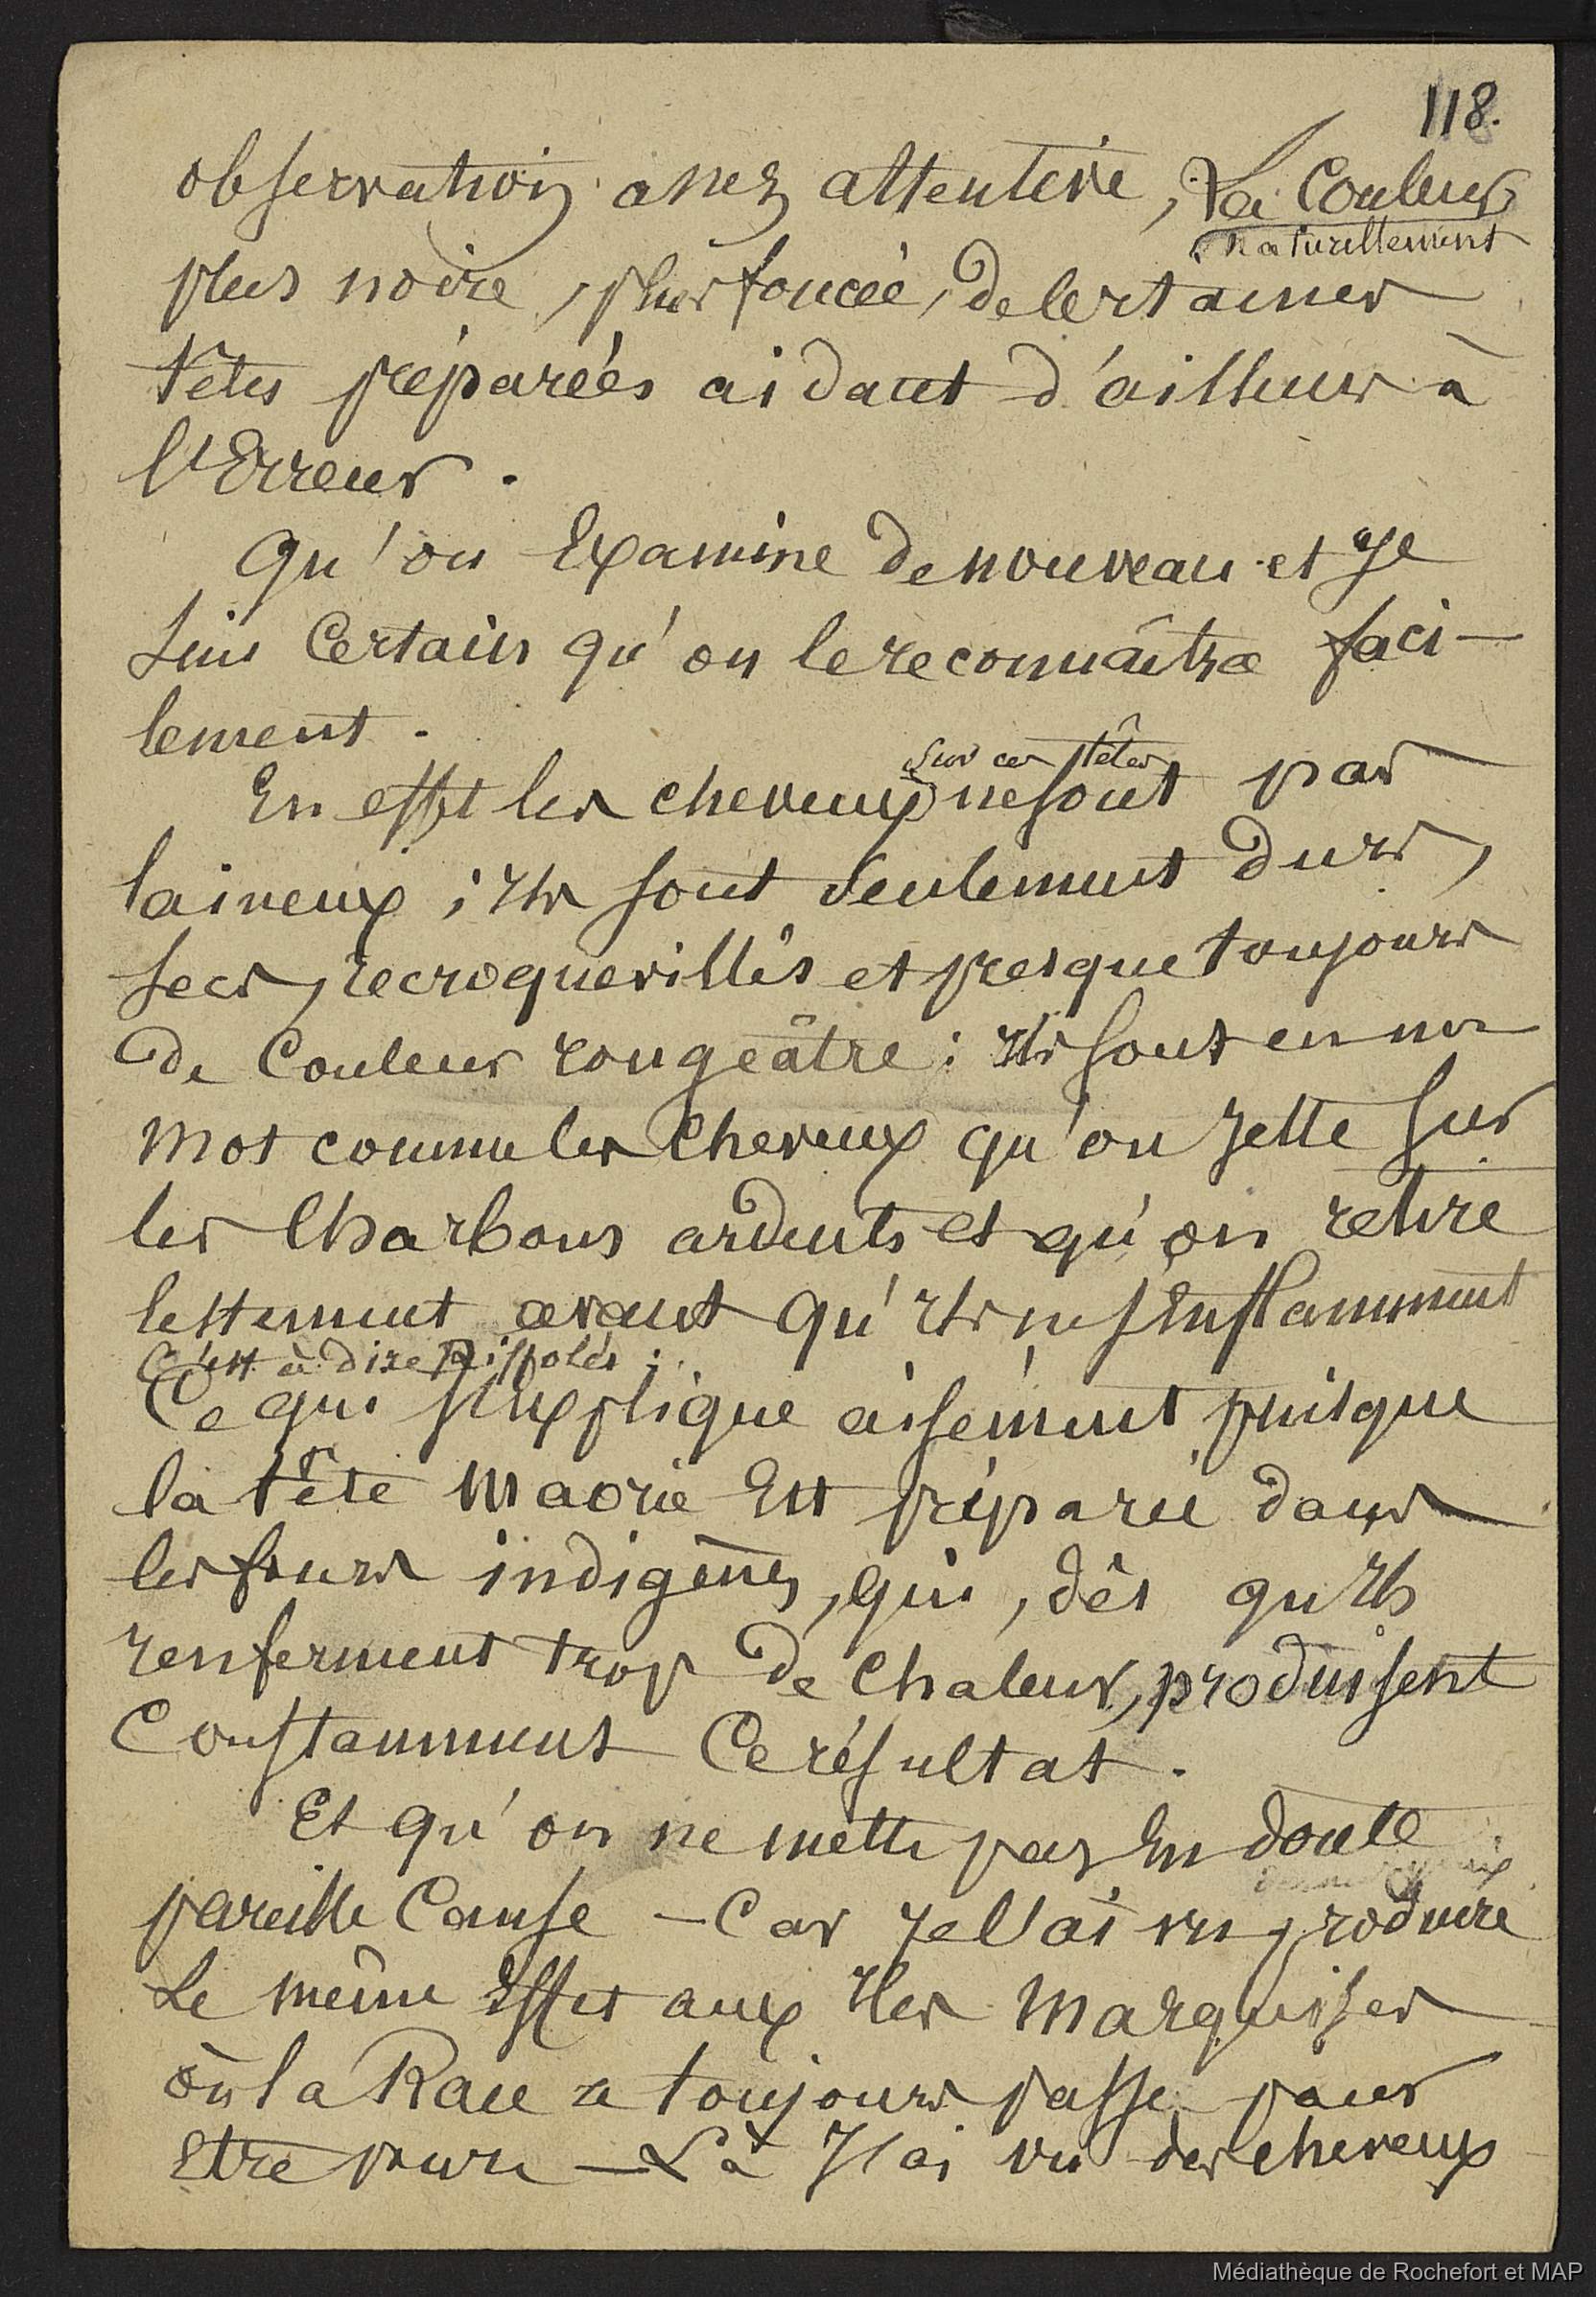 118.
observation assez attentive, la Couleur
naturellement
plus noire, plus foncée, de certaines
têtes préparées aidant d'ailleurs à
l'Erreur.
Qu'on Examine de nouveau et je
suis Certain qu'on le reconnaîtra faci-
lement.
sur ces têtes
En effet les cheveux ne sont pas
laineux ; Ils sont seulement durs,
secs, recroquevillés et presque toujours
de Couleur rougeâtre : Ils sont en un
mot comme les Cheveux qu'on jette sur
les Charbons ardents et qu'on retire
lestement avant qu'Ils ne s'Enflamment
C'est à dire Riffolés ;
Ce qui s'Explique aisément puisque
la tête Maorie Est préparée dans
les fours indigènes, qui, dès qu'Ils
renferment trop de Chaleur, produisent
Constamment Ce résultat.
Et qu'on ne mette pas En doute
pareille Cause - Car je l'ai vu produire
Le même Effet aux Iles Marquises
où la Race a toujours passé pour
Etre pure - Là J'ai vu des Cheveux
Médiathèque de Rochefort et MAP